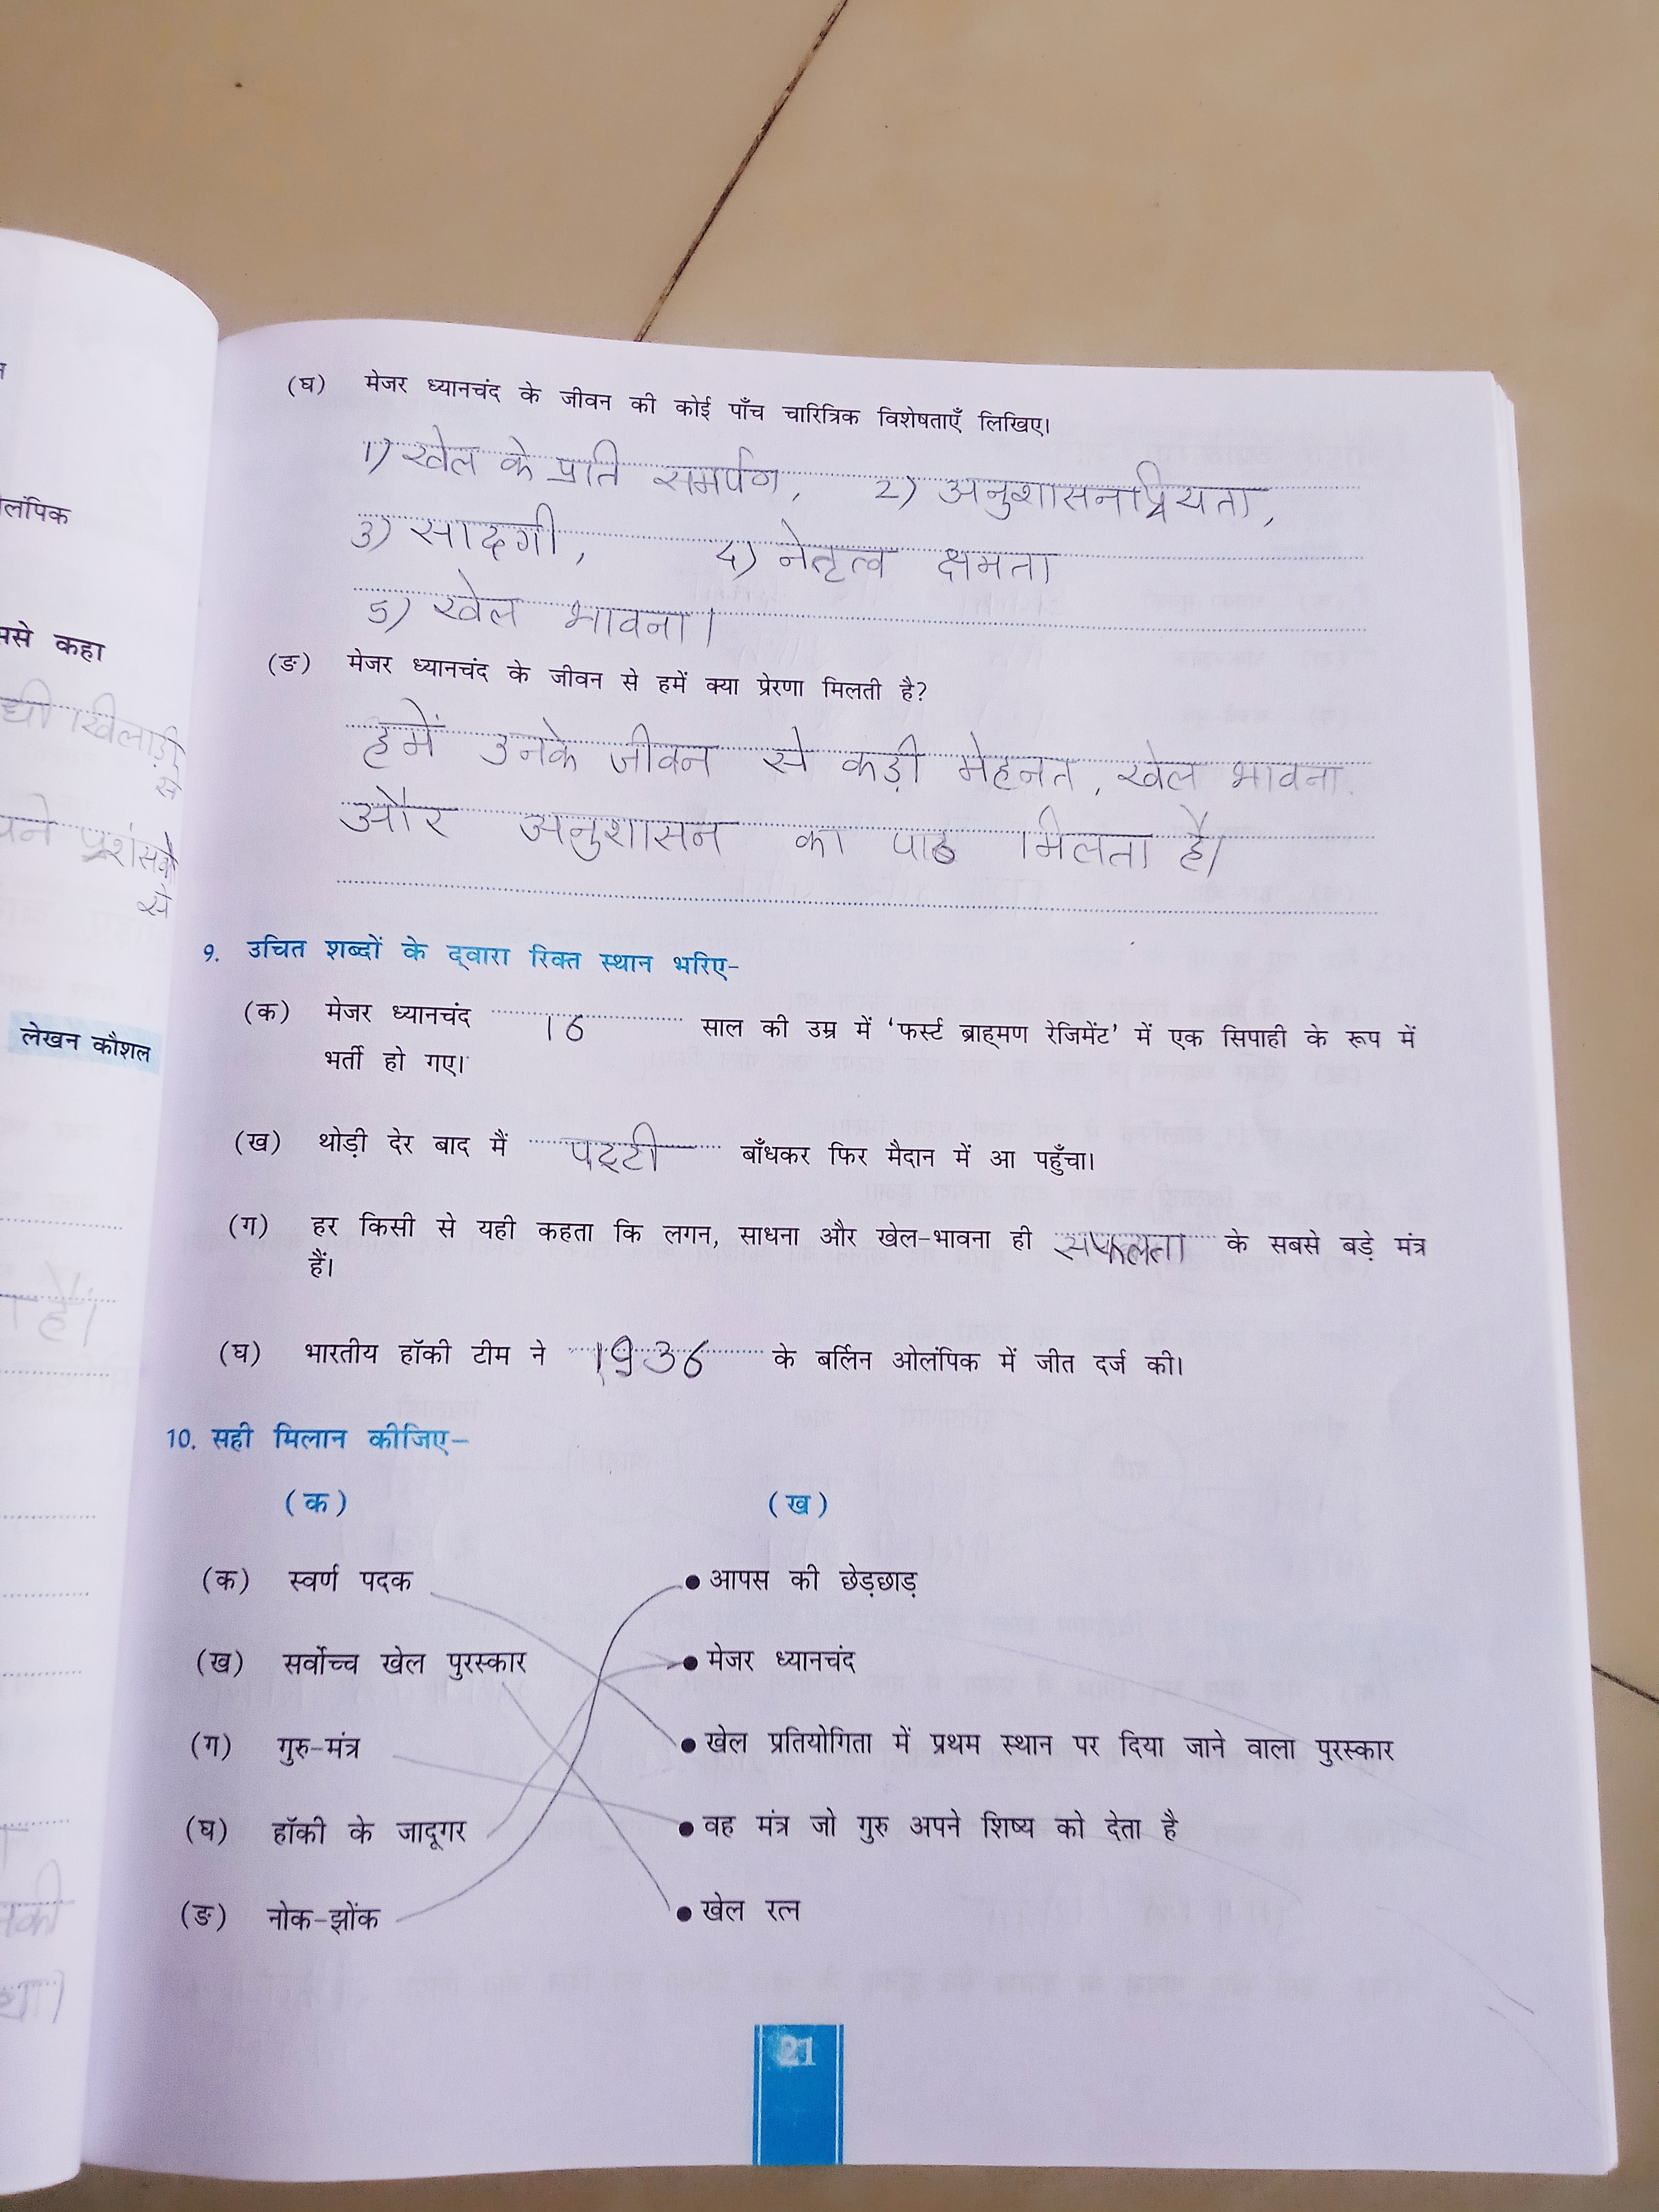 लंपिक
ससे कहा
खिलाड़ी
से
पने प्रशंसकों
से
लेखन कौशल
है।
था।
(घ) मेजर ध्यानचंद के जीवन की कोई पाँच चारित्रिक विशेषताएँ लिखिए।
1) खेल के प्रति समर्पण, 2) अनुशासनप्रियता,
3) सादगी, 4) नेतृत्व क्षमता
5) खेल भावना।
(ङ) मेजर ध्यानचंद के जीवन से हमें क्या प्रेरणा मिलती है?
हमें उनके जीवन से कड़ी मेहनत, खेल भावना
और अनुशासन का पाठ मिलता है।
9. उचित शब्दों के द्वारा रिक्त स्थान भरिए–
(क) मेजर ध्यानचंद 16 साल की उम्र में 'फर्स्ट ब्राह्मण रेजिमेंट' में एक सिपाही के रूप में
भर्ती हो गए।
(ख) थोड़ी देर बाद मैं पट्टी बाँधकर फिर मैदान में आ पहुँचा।
(ग) हर किसी से यही कहता कि लगन, साधना और खेल-भावना ही सफलता के सबसे बड़े मंत्र
हैं।
(घ) भारतीय हॉकी टीम ने 1936 के बर्लिन ओलंपिक में जीत दर्ज की।
10. सही मिलान कीजिए–
(क) (ख)
(क) स्वर्ण पदक ● आपस की छेड़छाड़
(ख) सर्वोच्च खेल पुरस्कार ● मेजर ध्यानचंद
(ग) गुरु-मंत्र ● खेल प्रतियोगिता में प्रथम स्थान पर दिया जाने वाला पुरस्कार
(घ) हॉकी के जादूगर ● वह मंत्र जो गुरु अपने शिष्य को देता है
(ङ) नोक-झोंक ● खेल रत्न
21